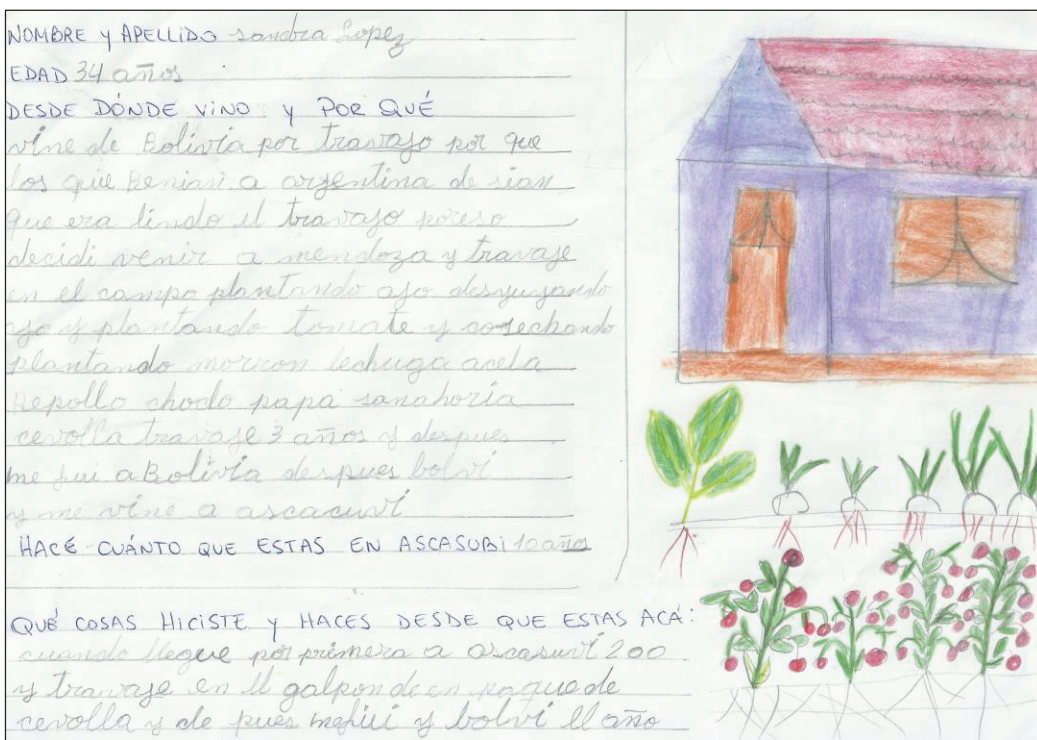 NOMBRE Y APELLIDO sandra Lopez
EDAD 34 años
DESDE DÓNDE VINO Y POR QUÉ
vine de Bolivia por travajo por que
los que benian a argentina de sian
que era lindo el travajo poreso
decidi venir a mendoza y travaje
en el campo plantando ajo desyuyando
ajo y plantando tomate y cosechando
plantando morron lechuga acela
Repollo choclo papa sanahoria
cevolla travaje 3 años y despues
me fui a Bolivia despues bolvi
y me vine a ascacuvi
HACE CUÁNTO QUE ESTAS EN ASCASUBI 10 años
QUÉ COSAS HICISTE Y HACES DESDE QUE ESTAS ACÁ:
cuando llegue por primera a ascasuvi 200
y travaje en el galpon de en paque de
cevolla y de pues mefui y bolvi el año